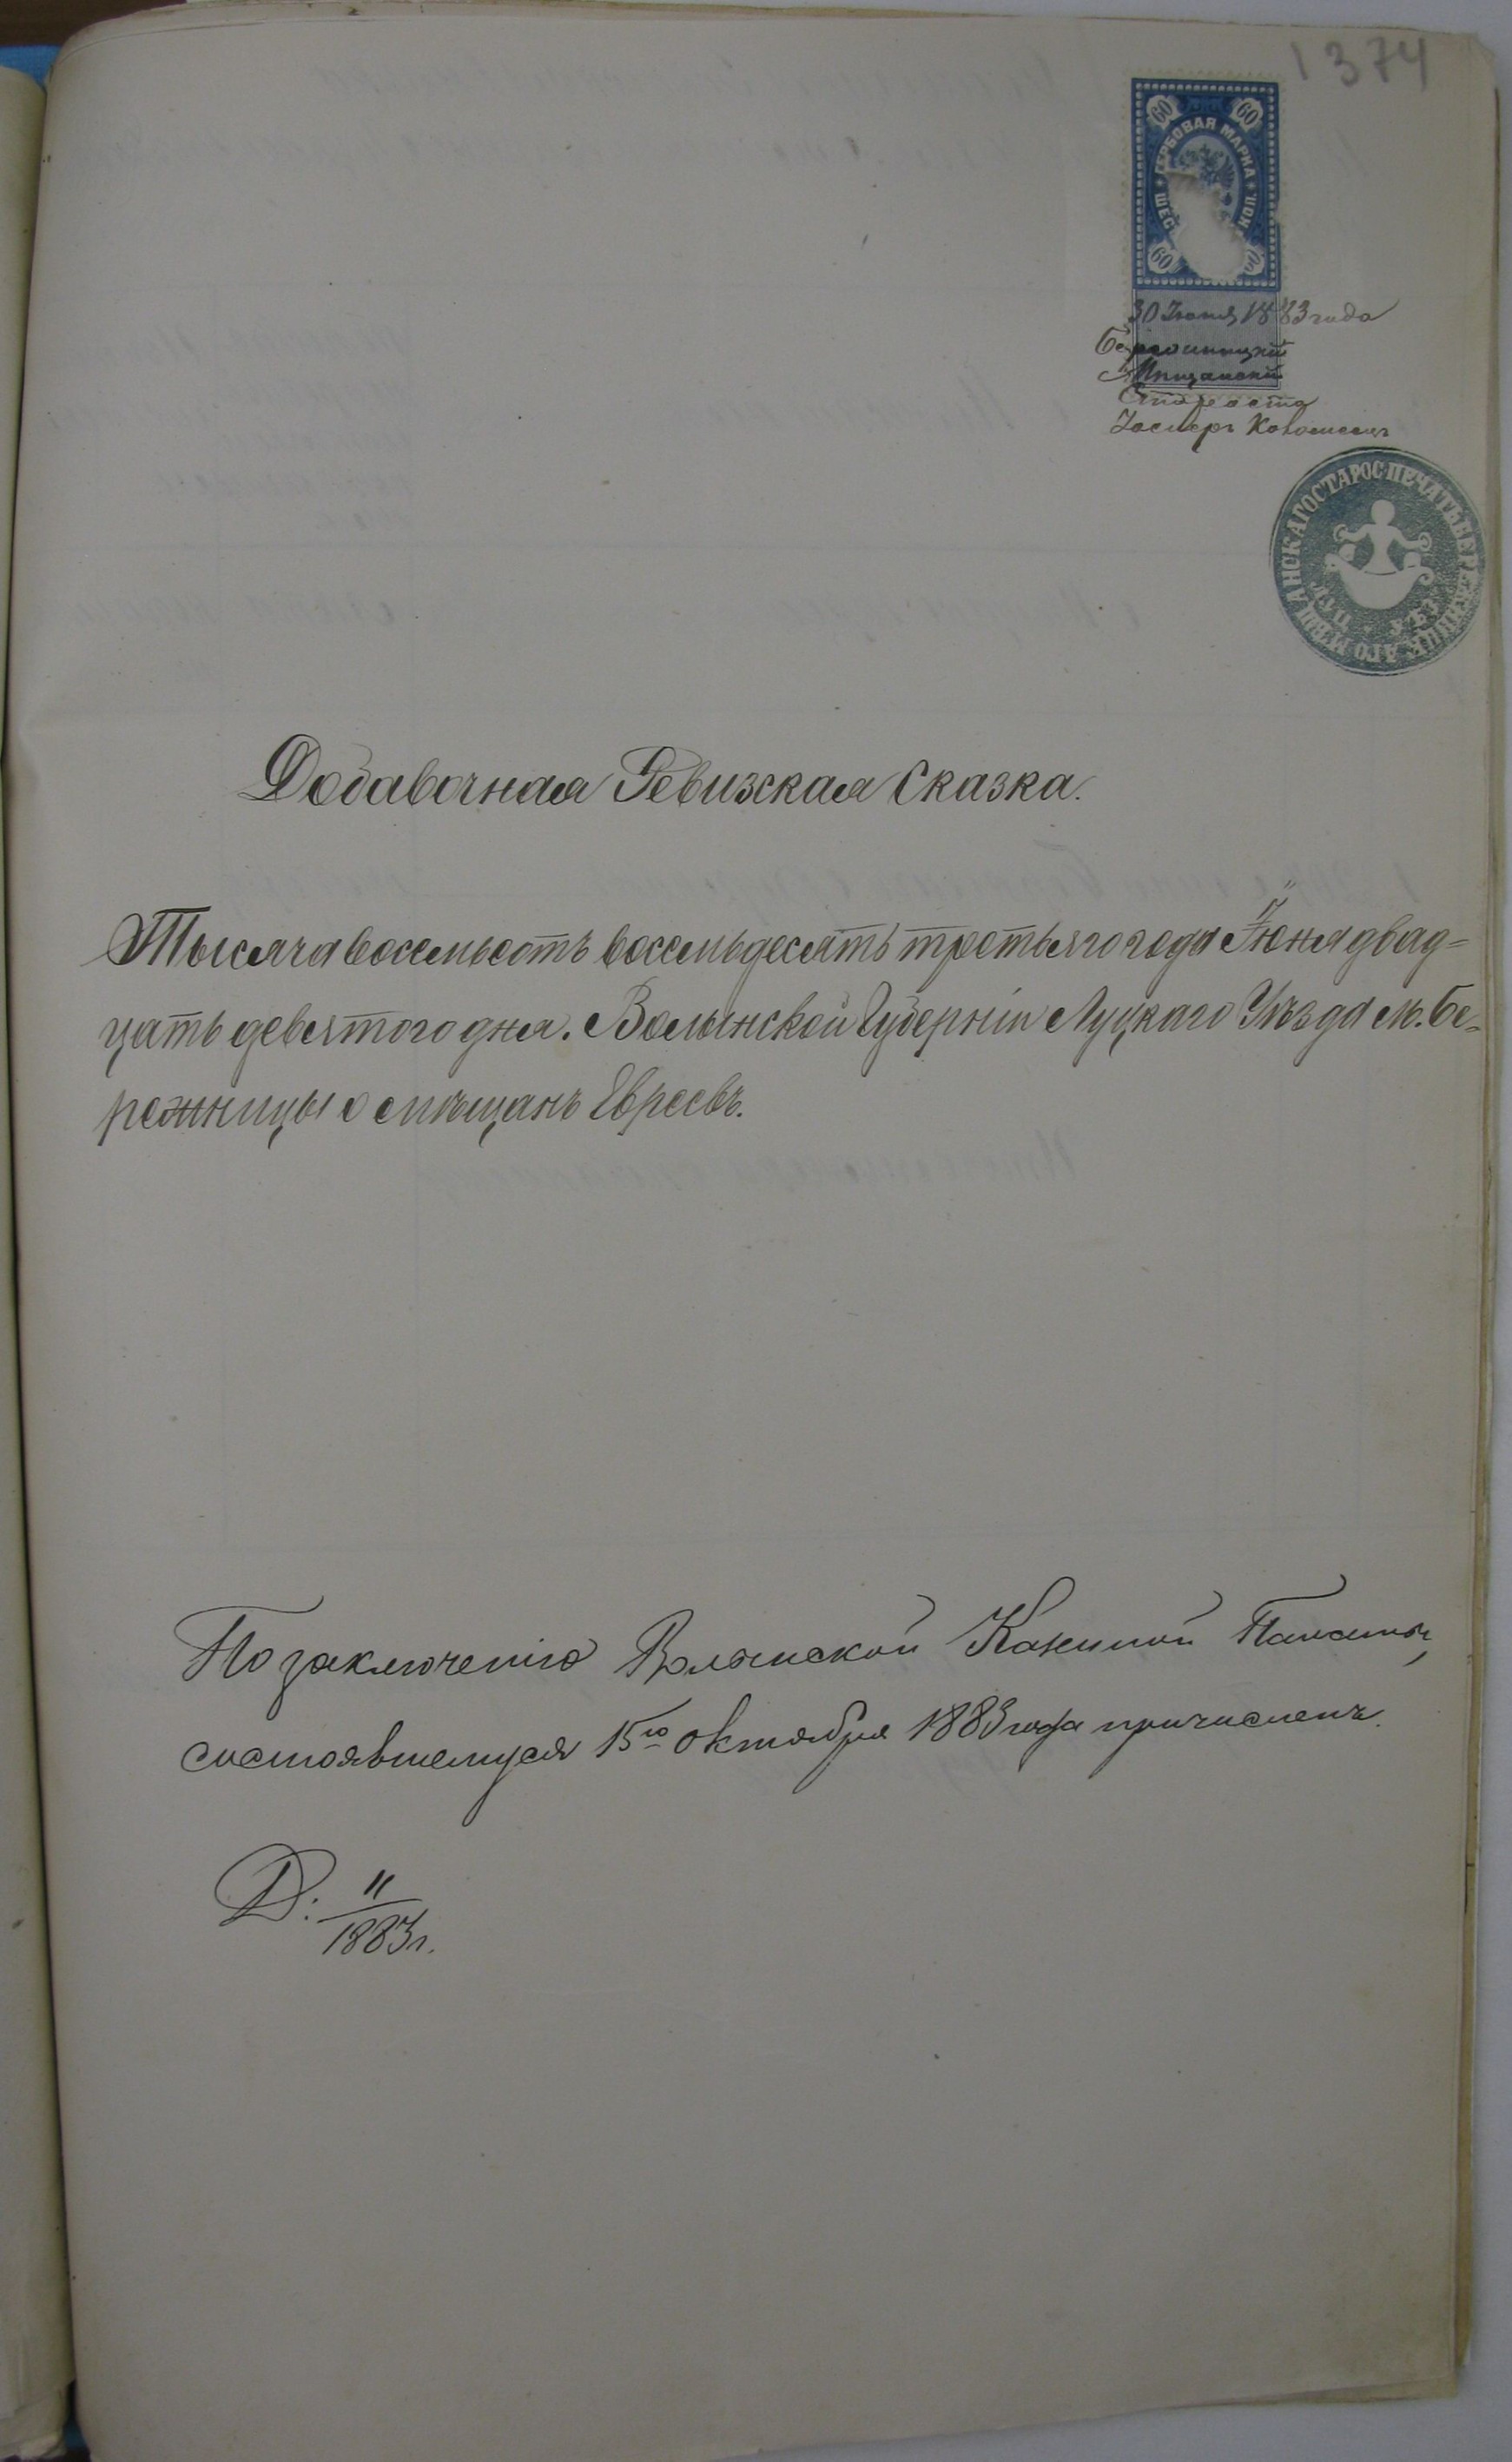 1374
60 60
ГЕРБОВАЯ МАРКА
ШЕС КОП
60 60
30 Іюня 1883 года
Бережницкій
Мѣщанскій
Староста
ПЕЧАТЬ БЕРЕЖНИЦКАГО МѢЩАНСКАГО СТАРОС
ЛУЦ УѢЗ
Добавочная Ревизская Сказка.
Тысяча восемьсотъ восемьдесятъ третьяго года Іюня двад=
цать девятого дня. Волынской Губерніи Луцкаго Уѣзда м. Бе=
режницы о мѣщанъ Евреевъ.
По заключенію Волынской Казенной Палаты,
состоявшемуся 15го октября 1883 года причисленъ.
Д: 11/1883 г.